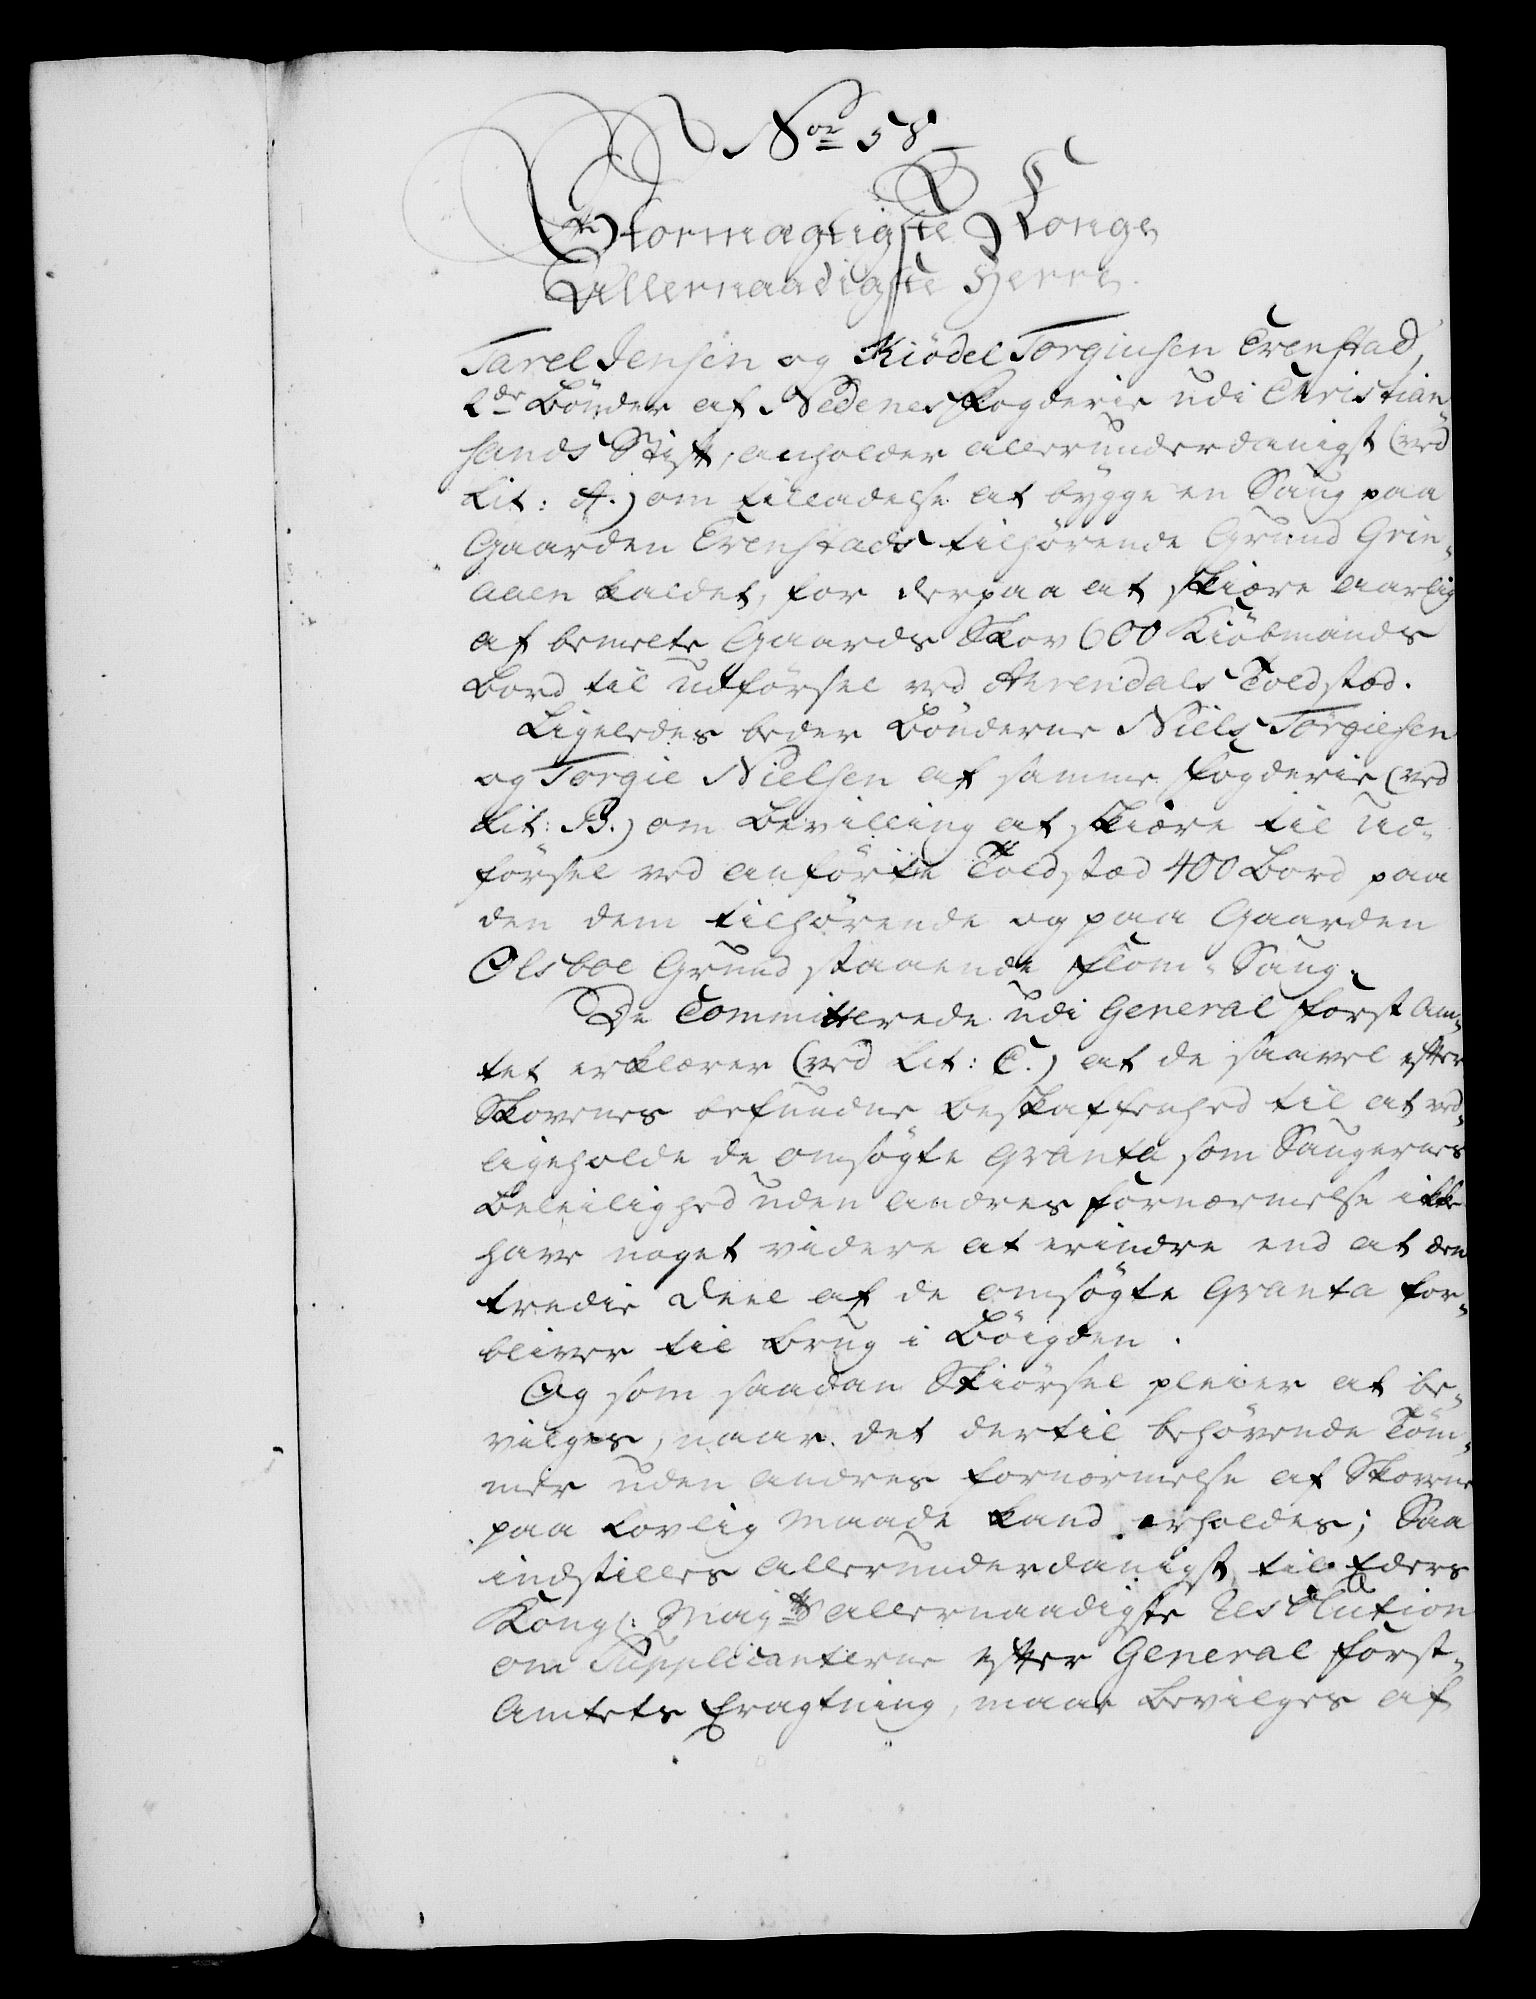 Nor 58
Stormægtigste Konge
Allernaadigste Herre.
Tarel Jensen og Kiödel Torgiusen Evenstad,
2de Bönder af Nedenes Fogderie udi Christian-
sands Stift, anholder allerunderdanigst (ved
Lit: A.) om tilladelse at bygge en Saug paa
Gaarden Evenstads tilhörende Grund Grin-
aaen kaldet, for derpaa at skiære aarlig
af bemelte Gaards Skov 600 Kiöbmands
Bord til udförsel ved Ahrendals Toldsted.
Ligeledes beder Bönderne Niels Torgiesen
og Torgie Nielsen af samme Fogderie (ved
Lit: B.) om Bevilling at skiære til Ud-
försel ved anförte Toldsted 400 Bord paa
den dem tilhörende og paa Gaarden
Olsboe Grund staaende Flom-Saug.
De Committerede udi General Forst Am-
tet erklærer (ved Lit: C.) at de saavel efter
Skovenes befundne beskaffenhed til at ved-
ligeholde de omsögte qvanta som Saugernes
Beleilighed uden andres Fornærmelse ikke
have noget videre at erindre end at den
tredie Deel af de omsögte qvanta for-
bliver til brug i Böigden.
Og som saadan Skiörsel pleier at be-
vilges, naar det dertil behövende Töm-
mer uden andres fornærmelse af Skovene
paa lovlig Maade kand erholdes; Saa
indstilles allerunderdanigst til Eders
Kongl: Majts allernaadigste Resolution
om Supplicanterne efter General Forst-
Amtets Eragtning, maae bevilges af